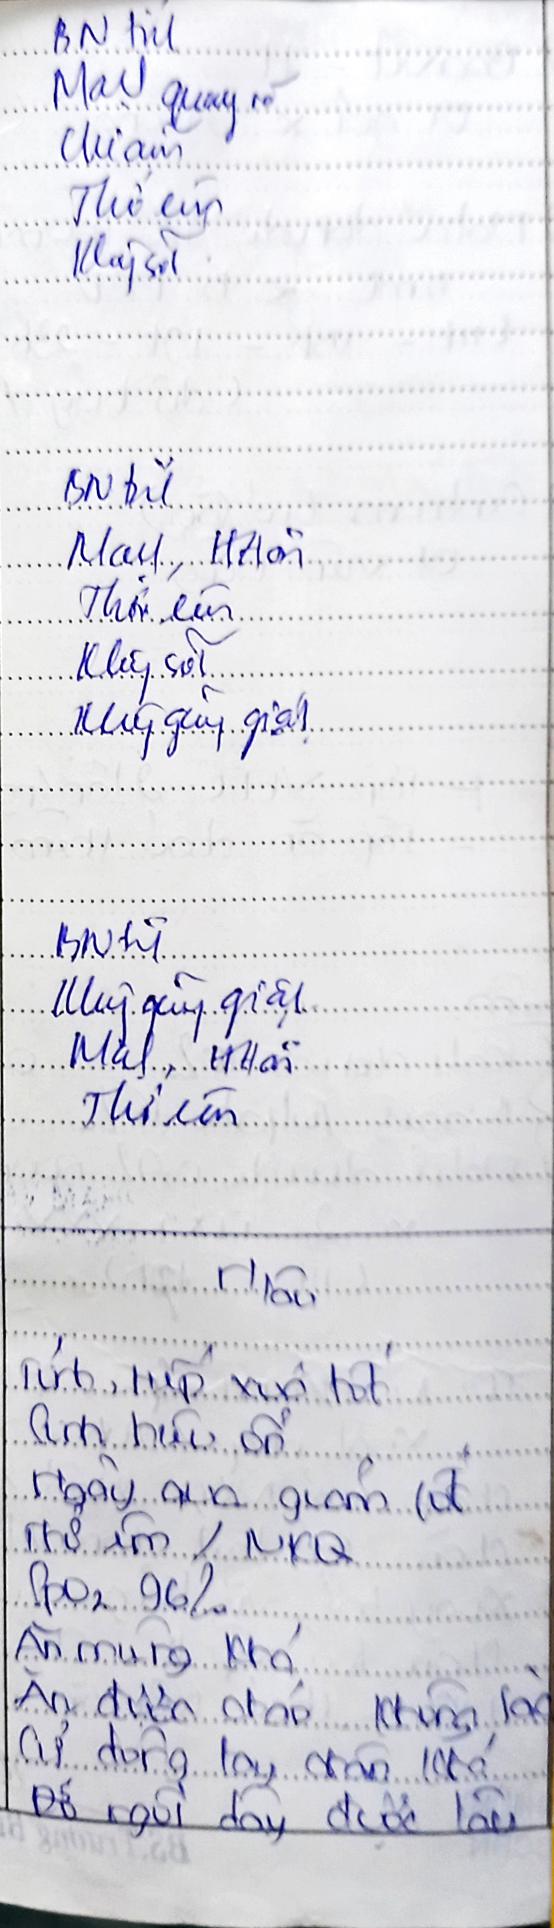 BN tỉnh
Mạch quay rõ
Chi ấm
Thở êm
Không sốt
BN tỉnh
Mạch, HA ổn
Thở êm
Không sốt
Không gồng giật
BN tỉnh
Không gồng giật
Mạch, HA ổn
Thở êm
Tỉnh, tiếp xúc tốt
Sinh hiệu ổn
Ngày qua giảm
Thở êm / NKQ
SpO2 96%
Ăn miệng khá
Ăn được cháo
Cử động tay chân khá
Đỡ ngồi dậy được lâu